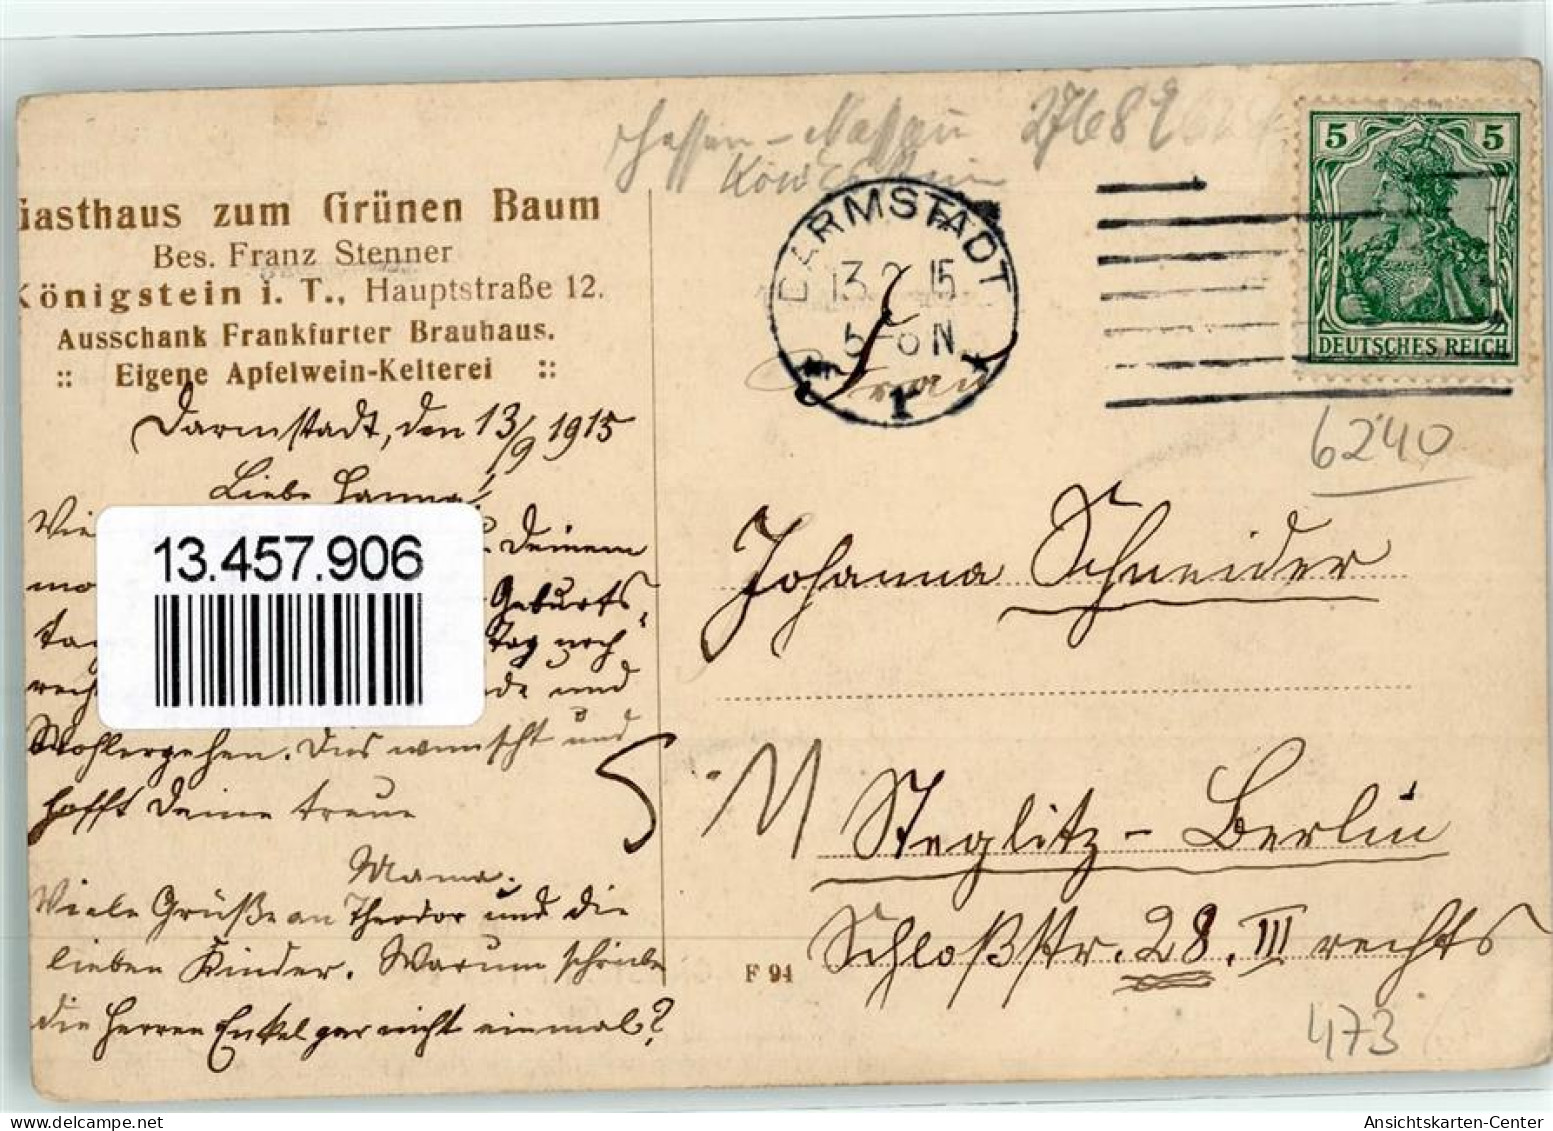 Hessen-Nassau 27689
Königstein
Gasthaus zum Grünen Baum
Bes. Franz Stenner
Königstein i. T., Hauptstraße 12.
Ausschank Frankfurter Brauhaus.
:: Eigene Apfelwein-Kelterei ::
DARMSTADT
13.9.15
5-6N
1
5 5
DEUTSCHES REICH
6240
Darmstadt, den 13/9 1915
Liebe Hanna!
Deinem
13.457.906
Geburts-
tag Tag noch
und
Wohlergehen. Dies wünscht und
hofft Deine treue
Mama.
Viele Grüße an Theodor und die
lieben Kinder. Warum schreiben
die Herren Enkel gar nicht einmal?
Frau
Johanna Schneider
Steglitz-Berlin
Schloßstr. 28. III rechts
F 94
473
Ansichtskarten-Center